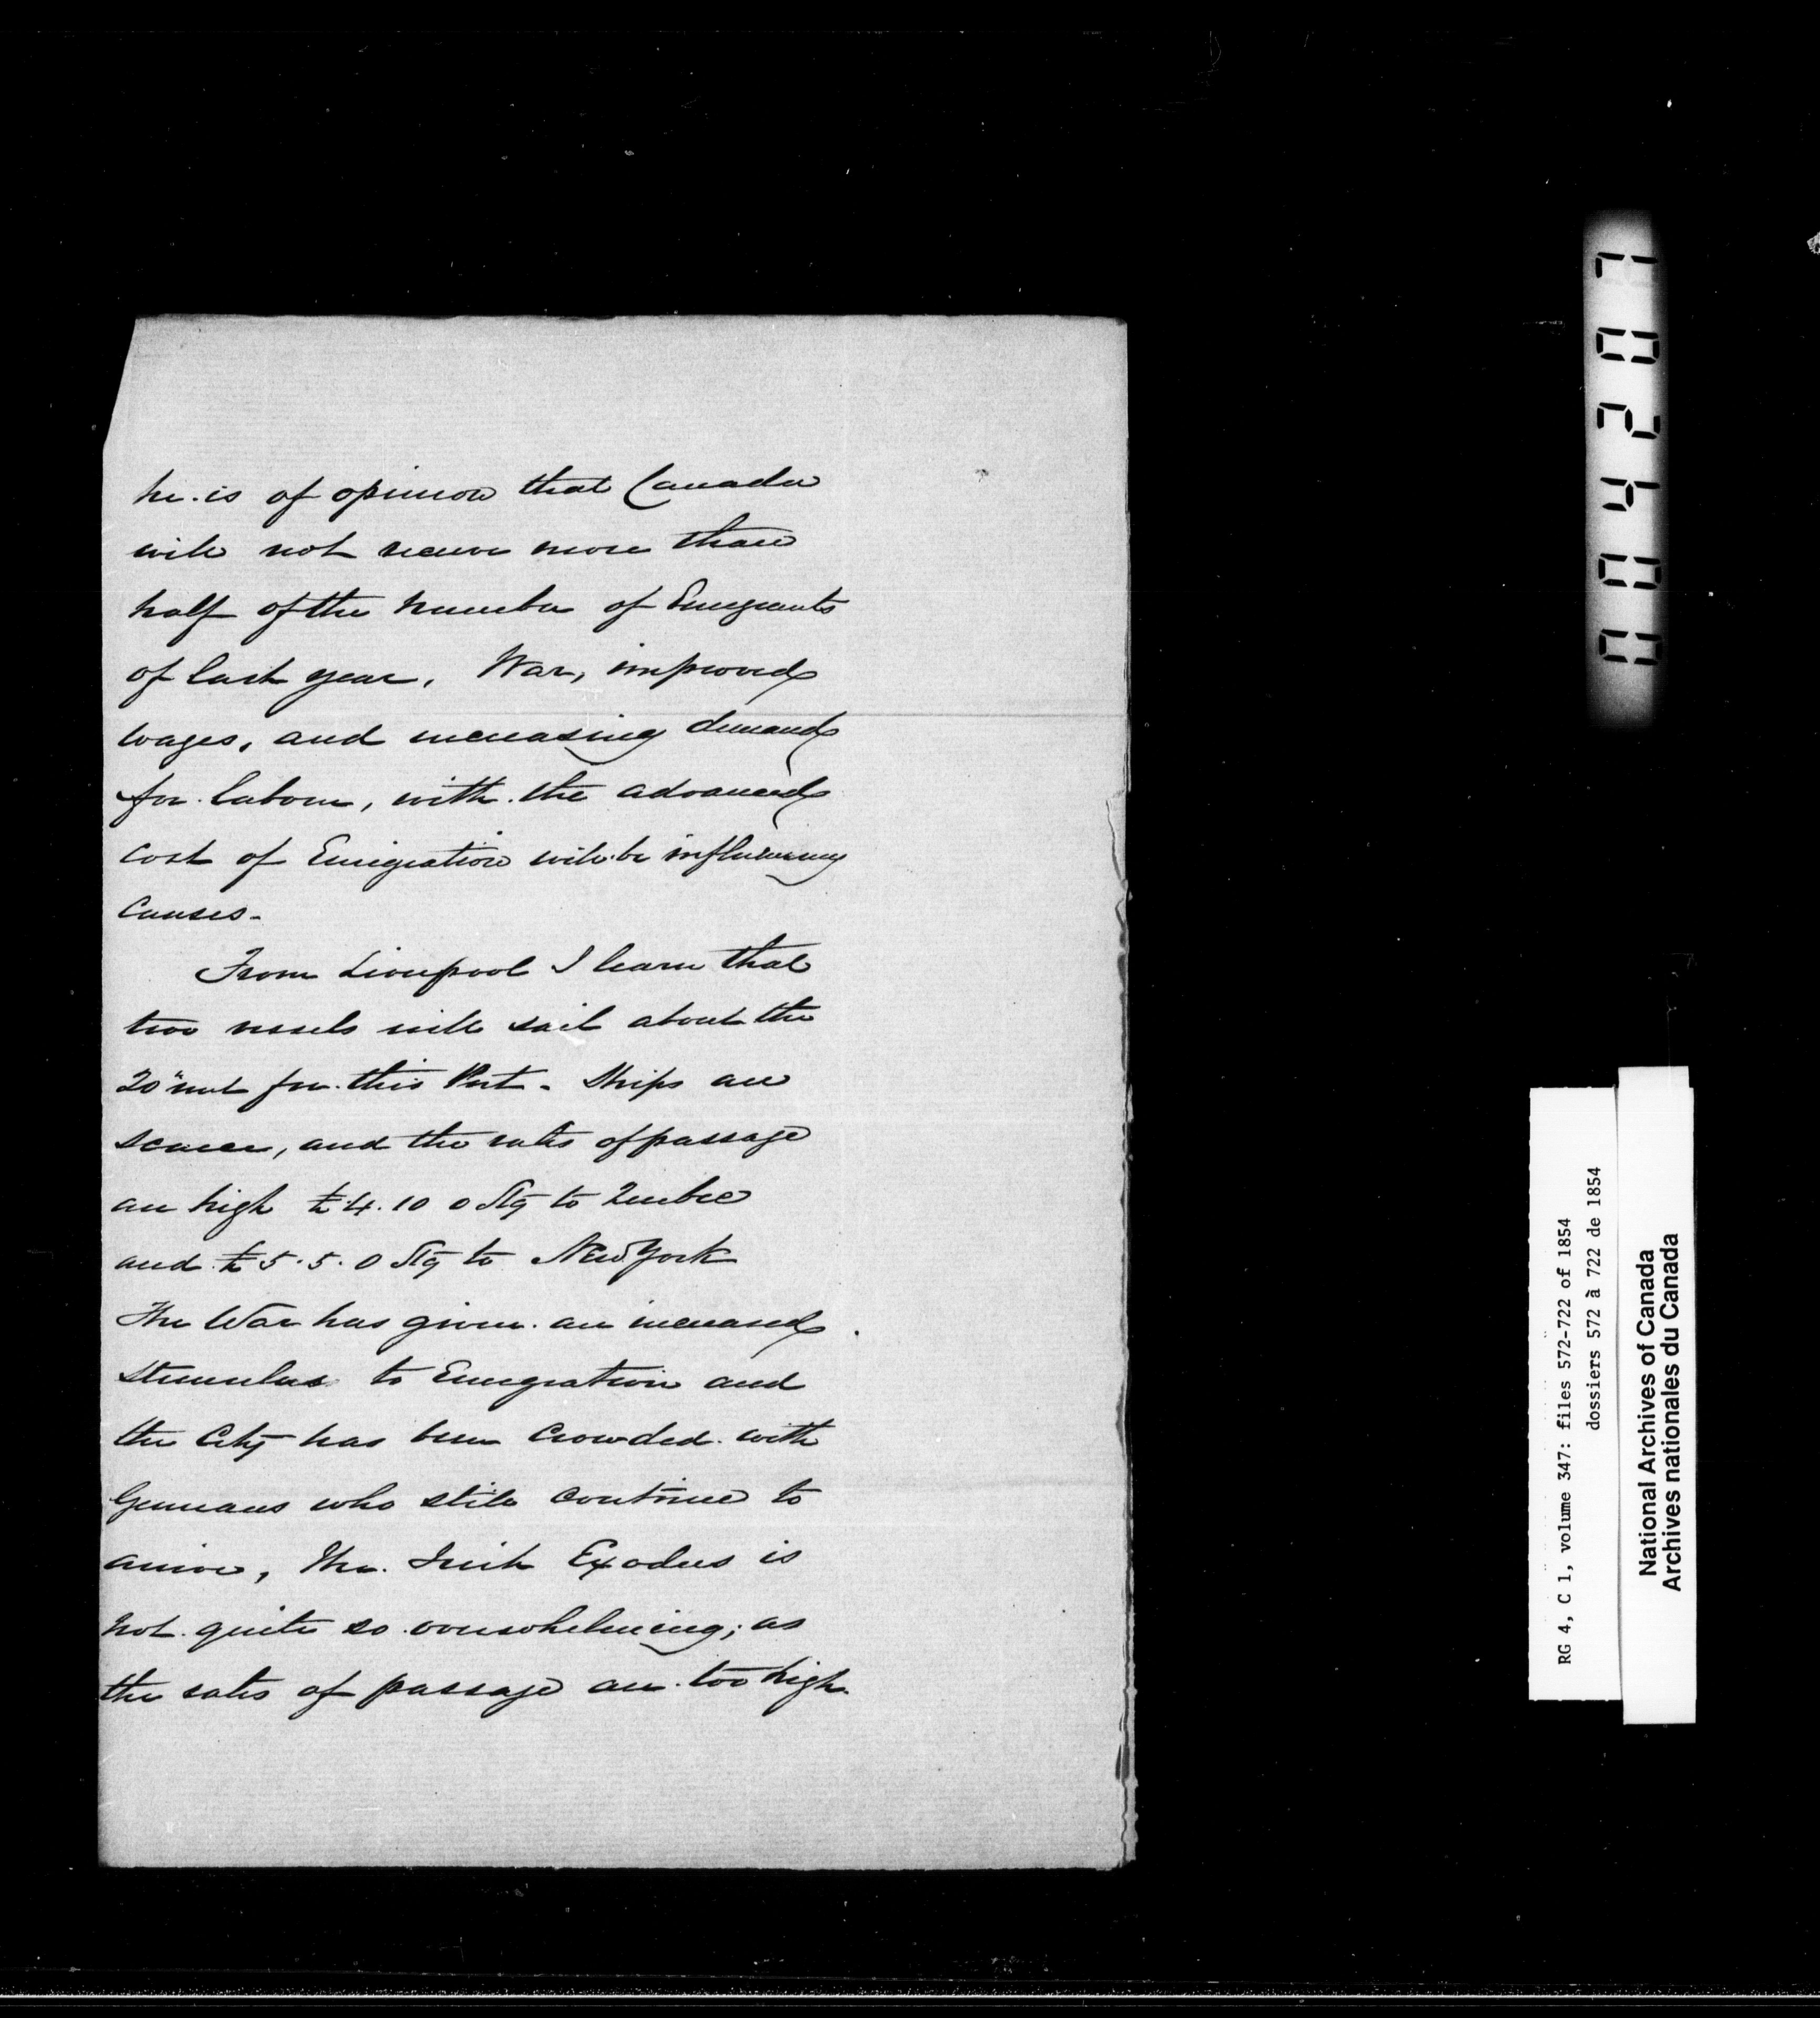 he is of opinion that Canada
will not receive more than
half of the number of Emigrants
of last year. War, improved
wages, and increasing demand
for labour, with the advanced
cost of Emigration will be influencing
causes -
From Liverpool I learn that
two vessels will sail about the
20" inst for this Port - Ships are
scarce, and the rates of passage
are high £4.10 0 Stg to Quebec
and £5.5.0 Stg to New York
The War has given an increased
stimulus to Emigration and
the City has been crowded with
Germans who still continue to
arrive, The Irish Exodus is
not quite so overwhelming; as
the rates of passage are too high.
004207
RG 4, C 1, volume 347: files 572-722 of 1854
dossiers 572 à 722 de 1854
National Archives of Canada
Archives nationales du Canada